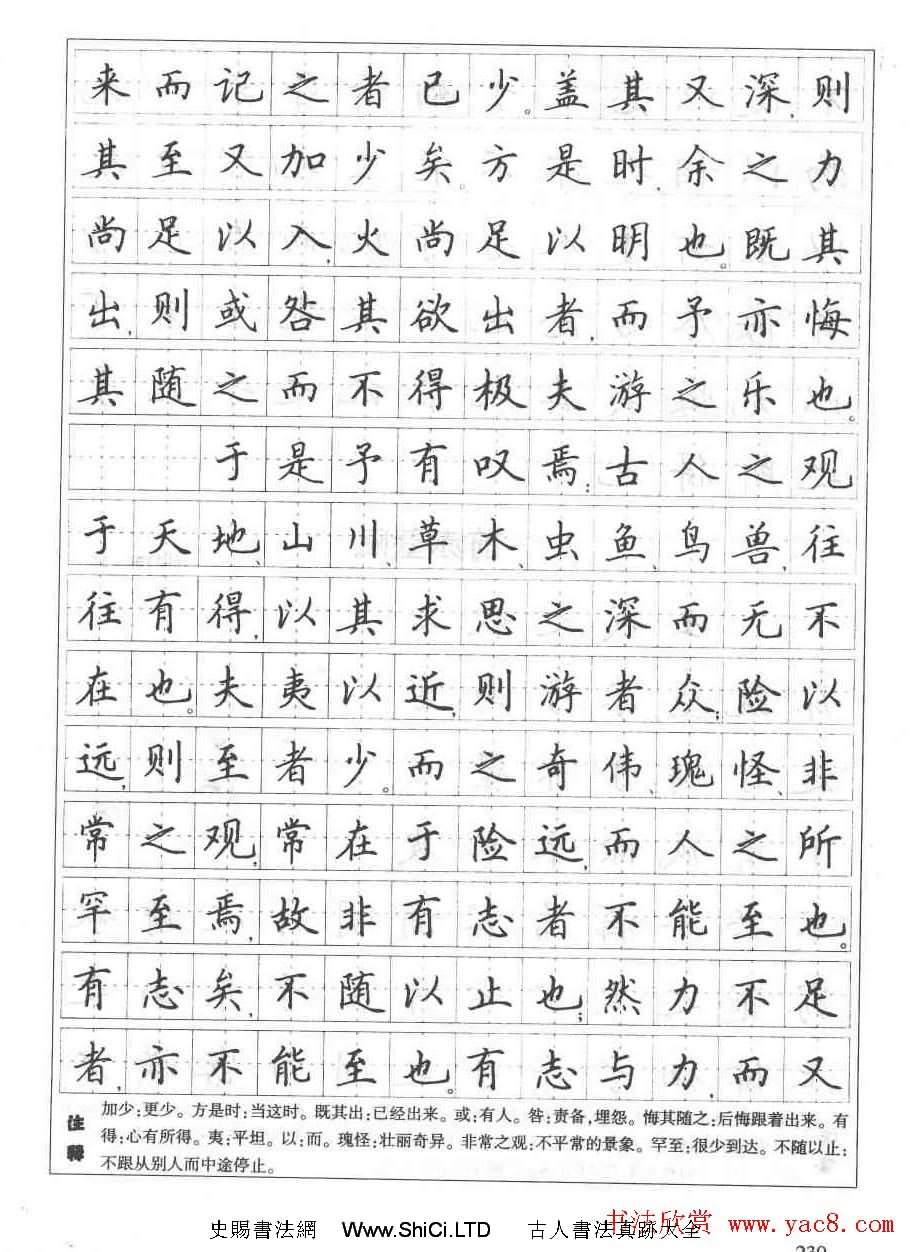 来而记之者已少。盖其又深,则
其至又加少矣。方是时,余之力
尚足以入,火尚足以明也。既其
出,则或咎其欲出者,而予亦悔
其随之而不得极夫游之乐也。
于是予有叹焉:古人之观
于天地、山川、草木、虫鱼、鸟兽,往
往有得,以其求思之深而无不
在也。夫夷以近,则游者众;险以
远,则至者少。而之奇伟、瑰怪、非
常之观,常在于险远,而人之所
罕至焉,故非有志者不能至也。
有志矣,不随以止也;然力不足
者,亦不能至也。有志与力,而又
注释
加少:更少。方是时:当这时。既其出:已经出来。或:有人。咎:责备,埋怨。悔其随之:后悔跟着出来。有
得:心有所得。夷:平坦。以:而。瑰怪:壮丽奇异。非常之观:不平常的景象。罕至:很少到达。不随以止:
不跟从别人而中途停止。
史賜書法網 Www.ShiCi.LTD 古人書法真跡大全
书法欣赏 www.yac8.com
239